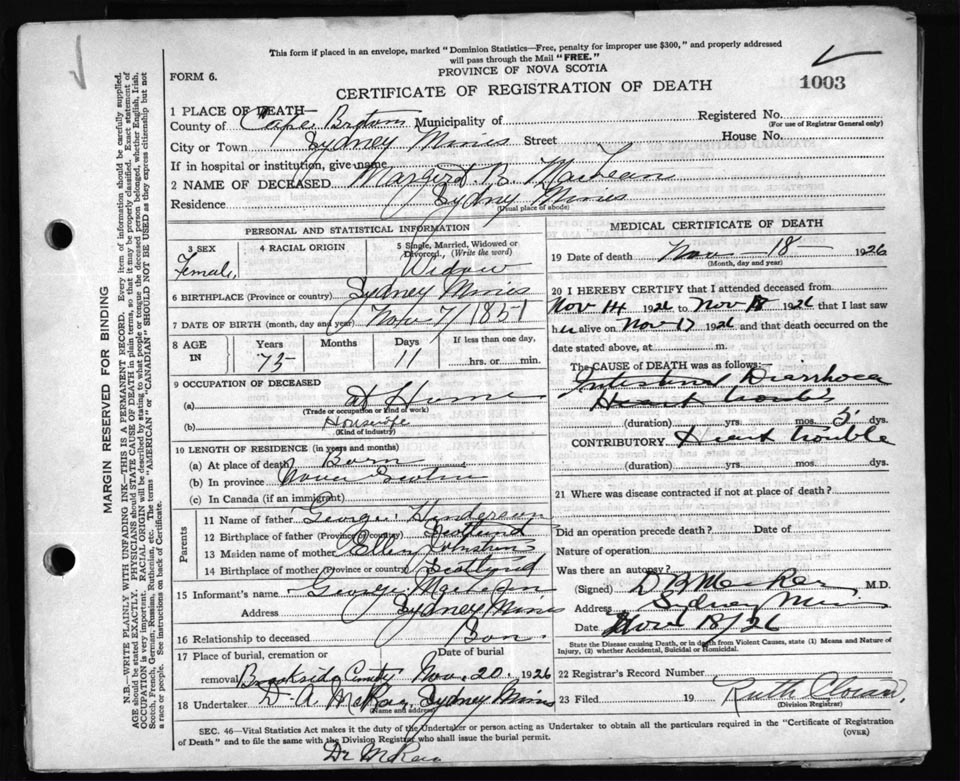 This form if placed in an envelope, marked "Dominion Statistics—Free, penalty for improper use $300," and properly addressed
will pass through the Mail "FREE."
FORM 6.
PROVINCE OF NOVA SCOTIA
CERTIFICATE OF REGISTRATION OF DEATH
1003
1 PLACE OF DEATH—
County of Cape Breton Municipality of
Registered No.
(For use of Registrar General only)
City or Town Sydney Mines Street
House No.
If in hospital or institution, give name
2 NAME OF DECEASED Margaret B. MacLean
Residence Sydney Mines
(Usual place of abode)
PERSONAL AND STATISTICAL INFORMATION
3 SEX
Female,
4 RACIAL ORIGIN
5 Single, Married, Widowed or Divorced, (Write the word)
Widow
6 BIRTHPLACE (Province or country) Sydney Mines
7 DATE OF BIRTH (month, day and year) Nov 7/1851
8 AGE IN
Years
75
Months
Days
11
If less than one day,
hrs. or min.
9 OCCUPATION OF DECEASED
(a) At Home
(Trade or occupation or kind of work)
(b) Housewife
(Kind of industry)
10 LENGTH OF RESIDENCE (in years and months)
(a) At place of death Born
(b) In province Nova Scotia
(c) In Canada (if an immigrant)
Parents
11 Name of father George Henderson
12 Birthplace of father (Province or country) Scotland
13 Maiden name of mother Ellen Johnston
14 Birthplace of mother (Province or country) Scotland
15 Informant's name George MacLean
Address Sydney Mines
16 Relationship to deceased Son
17 Place of burial, cremation or removal
Brookside Cemetery
Date of burial
Nov. 20 1926
18 Undertaker D. A. McRae, Sydney Mines
(Name and address)
MEDICAL CERTIFICATE OF DEATH
19 Date of death Nov 18 1926
(Month, day and year)
20 I HEREBY CERTIFY that I attended deceased from
Nov 14 1926 to Nov 18 1926 that I last saw
her alive on Nov 17 1926 and that death occurred on the
date stated above, at m.
The CAUSE of DEATH was as follows:—
Intestinal Diarrhoea
Heart trouble
(duration) yrs. mos. 5 dys.
CONTRIBUTORY Heart trouble
(duration) yrs. mos. dys.
21 Where was disease contracted if not at place of death?
Did an operation precede death? Date of
Nature of operation
Was there an autopsy?
(Signed) M.D.
Address Sydney Mines
Date Nov 18/26
State the Disease causing Death, or in death from Violent Causes, state (1) Means and Nature of
Injury, (2) whether Accidental, Suicidal or Homicidal.
22 Registrar's Record Number
23 Filed 19 Ruth
(Division Registrar)
SEC. 46—Vital Statistics Act makes it the duty of Undertaker or person acting as Undertaker to obtain all the particulars required in the "Certificate of Registration
of Death" and to file the same with the Division Registrar who shall issue the burial permit.
(OVER)
Dr McRae
MARGIN RESERVED FOR BINDING
N.B.—WRITE PLAINLY WITH UNFADING INK—THIS IS A PERMANENT RECORD. Every item of information should be carefully supplied.
AGE should be stated EXACTLY. PHYSICIANS should STATE CAUSE OF DEATH in plain terms, so that it may be properly classified. Exact statement of
OCCUPATION is very important. RACIAL ORIGIN will be described by stating to what people or tongue the deceased person belonged, whether English, Irish,
Scotch, French, German, Russian, Ruthenian, etc. The terms "AMERICAN" or "CANADIAN" SHOULD NOT BE USED as they express citizenship but not
a race or people. See instructions on back of Certificate.